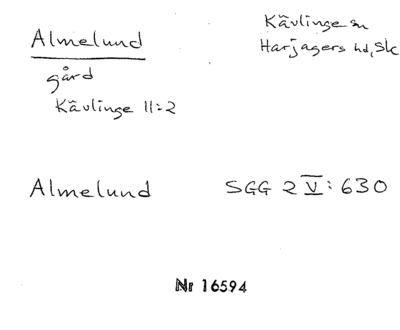 Almelund
gård
Kävlinge 11:2
Kävlinge sn
Harjagers hd, Sk
Almelund
SGG 2 V: 630
Nr 16594